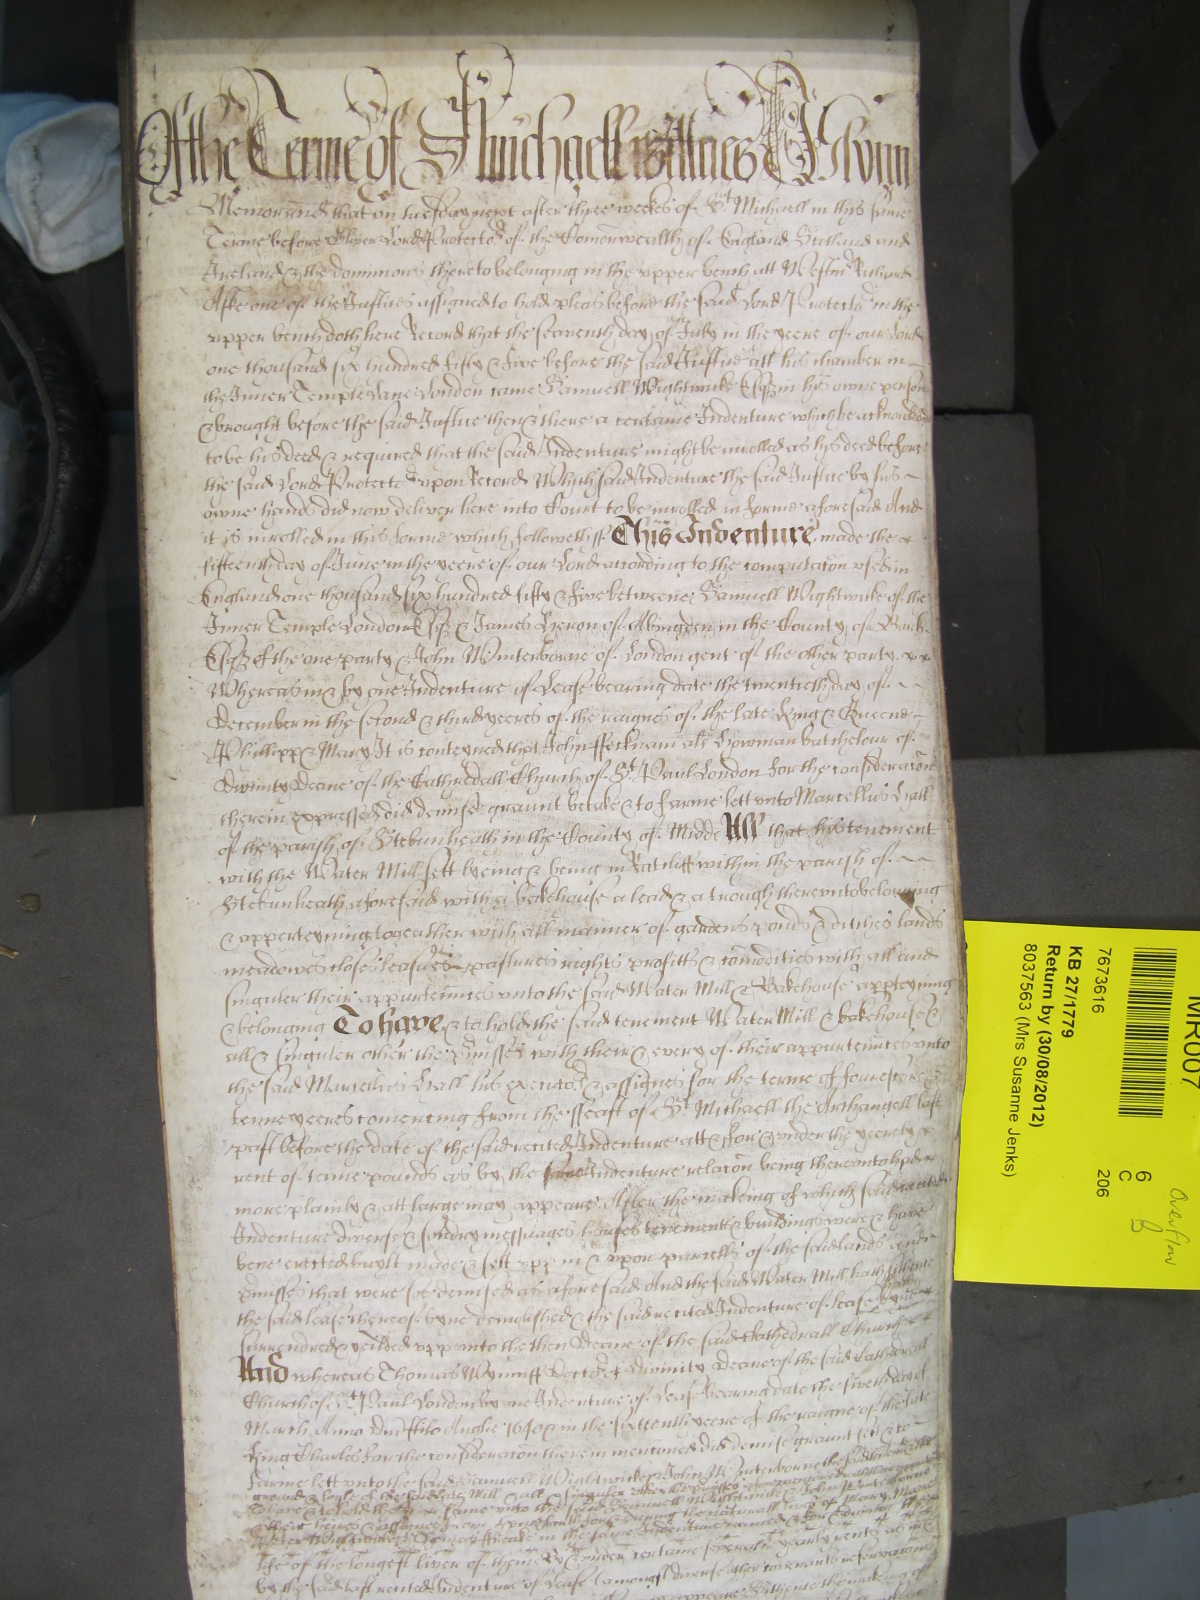 Of the Terme of St Michaell Wittnes
Memorand that on tuesday next after three weekes of St Michaell in this same
Terme before Oliver Lord Protector of the Comonwealth of England Scotland and
Ireland & the dominions thereto belonging in the upper bench att Westmr Richard
Aske one of the Justices assigned to hold pleas before the said Lord Protector in the
upper bench doth here Record that the seaventh day of July in the yeere of our Lord
one thousand six hundred fifty & five before the said Justice att his chamber in
the Inner Temple Lane London came Samuell Wightwicke Esqr in his owne person
& brought before the said Justice then & there a certaine Indenture which he acknowledged
to be his deed & required that the said Indenture might be inrolled as his deed before
the said Lord Protector upon Record Which said Indenture the said Justice by his
owne hands did now deliver here into Court to be inrolled in forme aforesaid And
it is inrolled in this forme which followeth ss. This Indenture made the
fifteenth day of June in the yeere of our Lord according to the computacon used in
England one thousand six hundred fifty & five betweene Samuell Wightwicke of the
Inner Temple London Esqr & James Heron of Abingdon in the County of Berk
Esqr of the one party & John Winterborne of London gent of the other party
Whereas in & by one Indenture of Lease bearing date the twentieth day of
December in the second & third yeeres of the raignes of the late King & Queene
Phillipp & Mary It is conteyned that John Fecknam als Howman batchelour of
Divinity Deane of the Cathedrall Church of St Paul London for the consideracon
therein expressed did demise graunt betake & to farme lett unto Marcellus Hall
of the parish of Stebunheath in the County of Midd All that his tenement
with the Water Mill sett lyeing & being in Ratcliff within the parish of
Stebunheath aforesaid with a bakehouse a lead & a trough thereunto belonging
& apperteyning togeather with all manner of gardens ponds & ditches lands
meadowes closes leasues pastures rights profitts & comodities with all and
singuler their appurtennces unto the said Water Mill & Bakehouse apperteyning
& belonging To have & to hold the said tenement Water Mill & bakehouse &
all & singuler other the pmisses with their & every of their appurtennces unto
the said Marcellus Hall his executors & assignes for the terme of fourescore &
tenne yeeres comencing from the Feast of St Michaell the Archangell last
past before the date of the said recited Indenture att & for & under the yeerely
rent of tenne pounds as by the same Indenture relacon being thereunto had
more plainly & att large may appeare After the making of which said recited
Indenture diverse & sundry messuages houses tenements & buildings were & have
bene erected built made & sett upp in & upon parcells of the said lands and
pmisses that were soe demised as aforesaid And the said Water Mill hath sithence
the said lease thereof byne demolished & the said recited Indenture of lease hath byne
surrendred & yeilded upp unto the then Deane of the said Cathedrall Church
And whereas Thomas Wynniff Doctor of Divinity Deane of the said Cathedrall
Church of St Paul London by one Indenture of Lease bearing date the day of
March Anno Dni stilo Anglie 1640 & in the sixteenth yeere of the raigne of the late
King Charles for the consideracon therein mencoed did demise graunt sett & to
Farme lett unto the said Samuell Wightwicke & John Winterborne the said
ground & soyle of the said late Mill & all & singuler other the pmisses
To have & to hold the same unto the said Samuell Wightwicke & John Winterborne
their heires & assignes during the naturall lives of
in the same Indenture named
life of the longest liver of them By & under certaine severall yearly rents as in &
by the said last recited Indenture of Lease (amongst diverse other covenants reservacons
appeare Sithence the making of
MR007
7673616
6
C
206
KB 27/1779
Return by (30/08/2012)
8037563 (Mrs Susanne Jenks)
Overflow